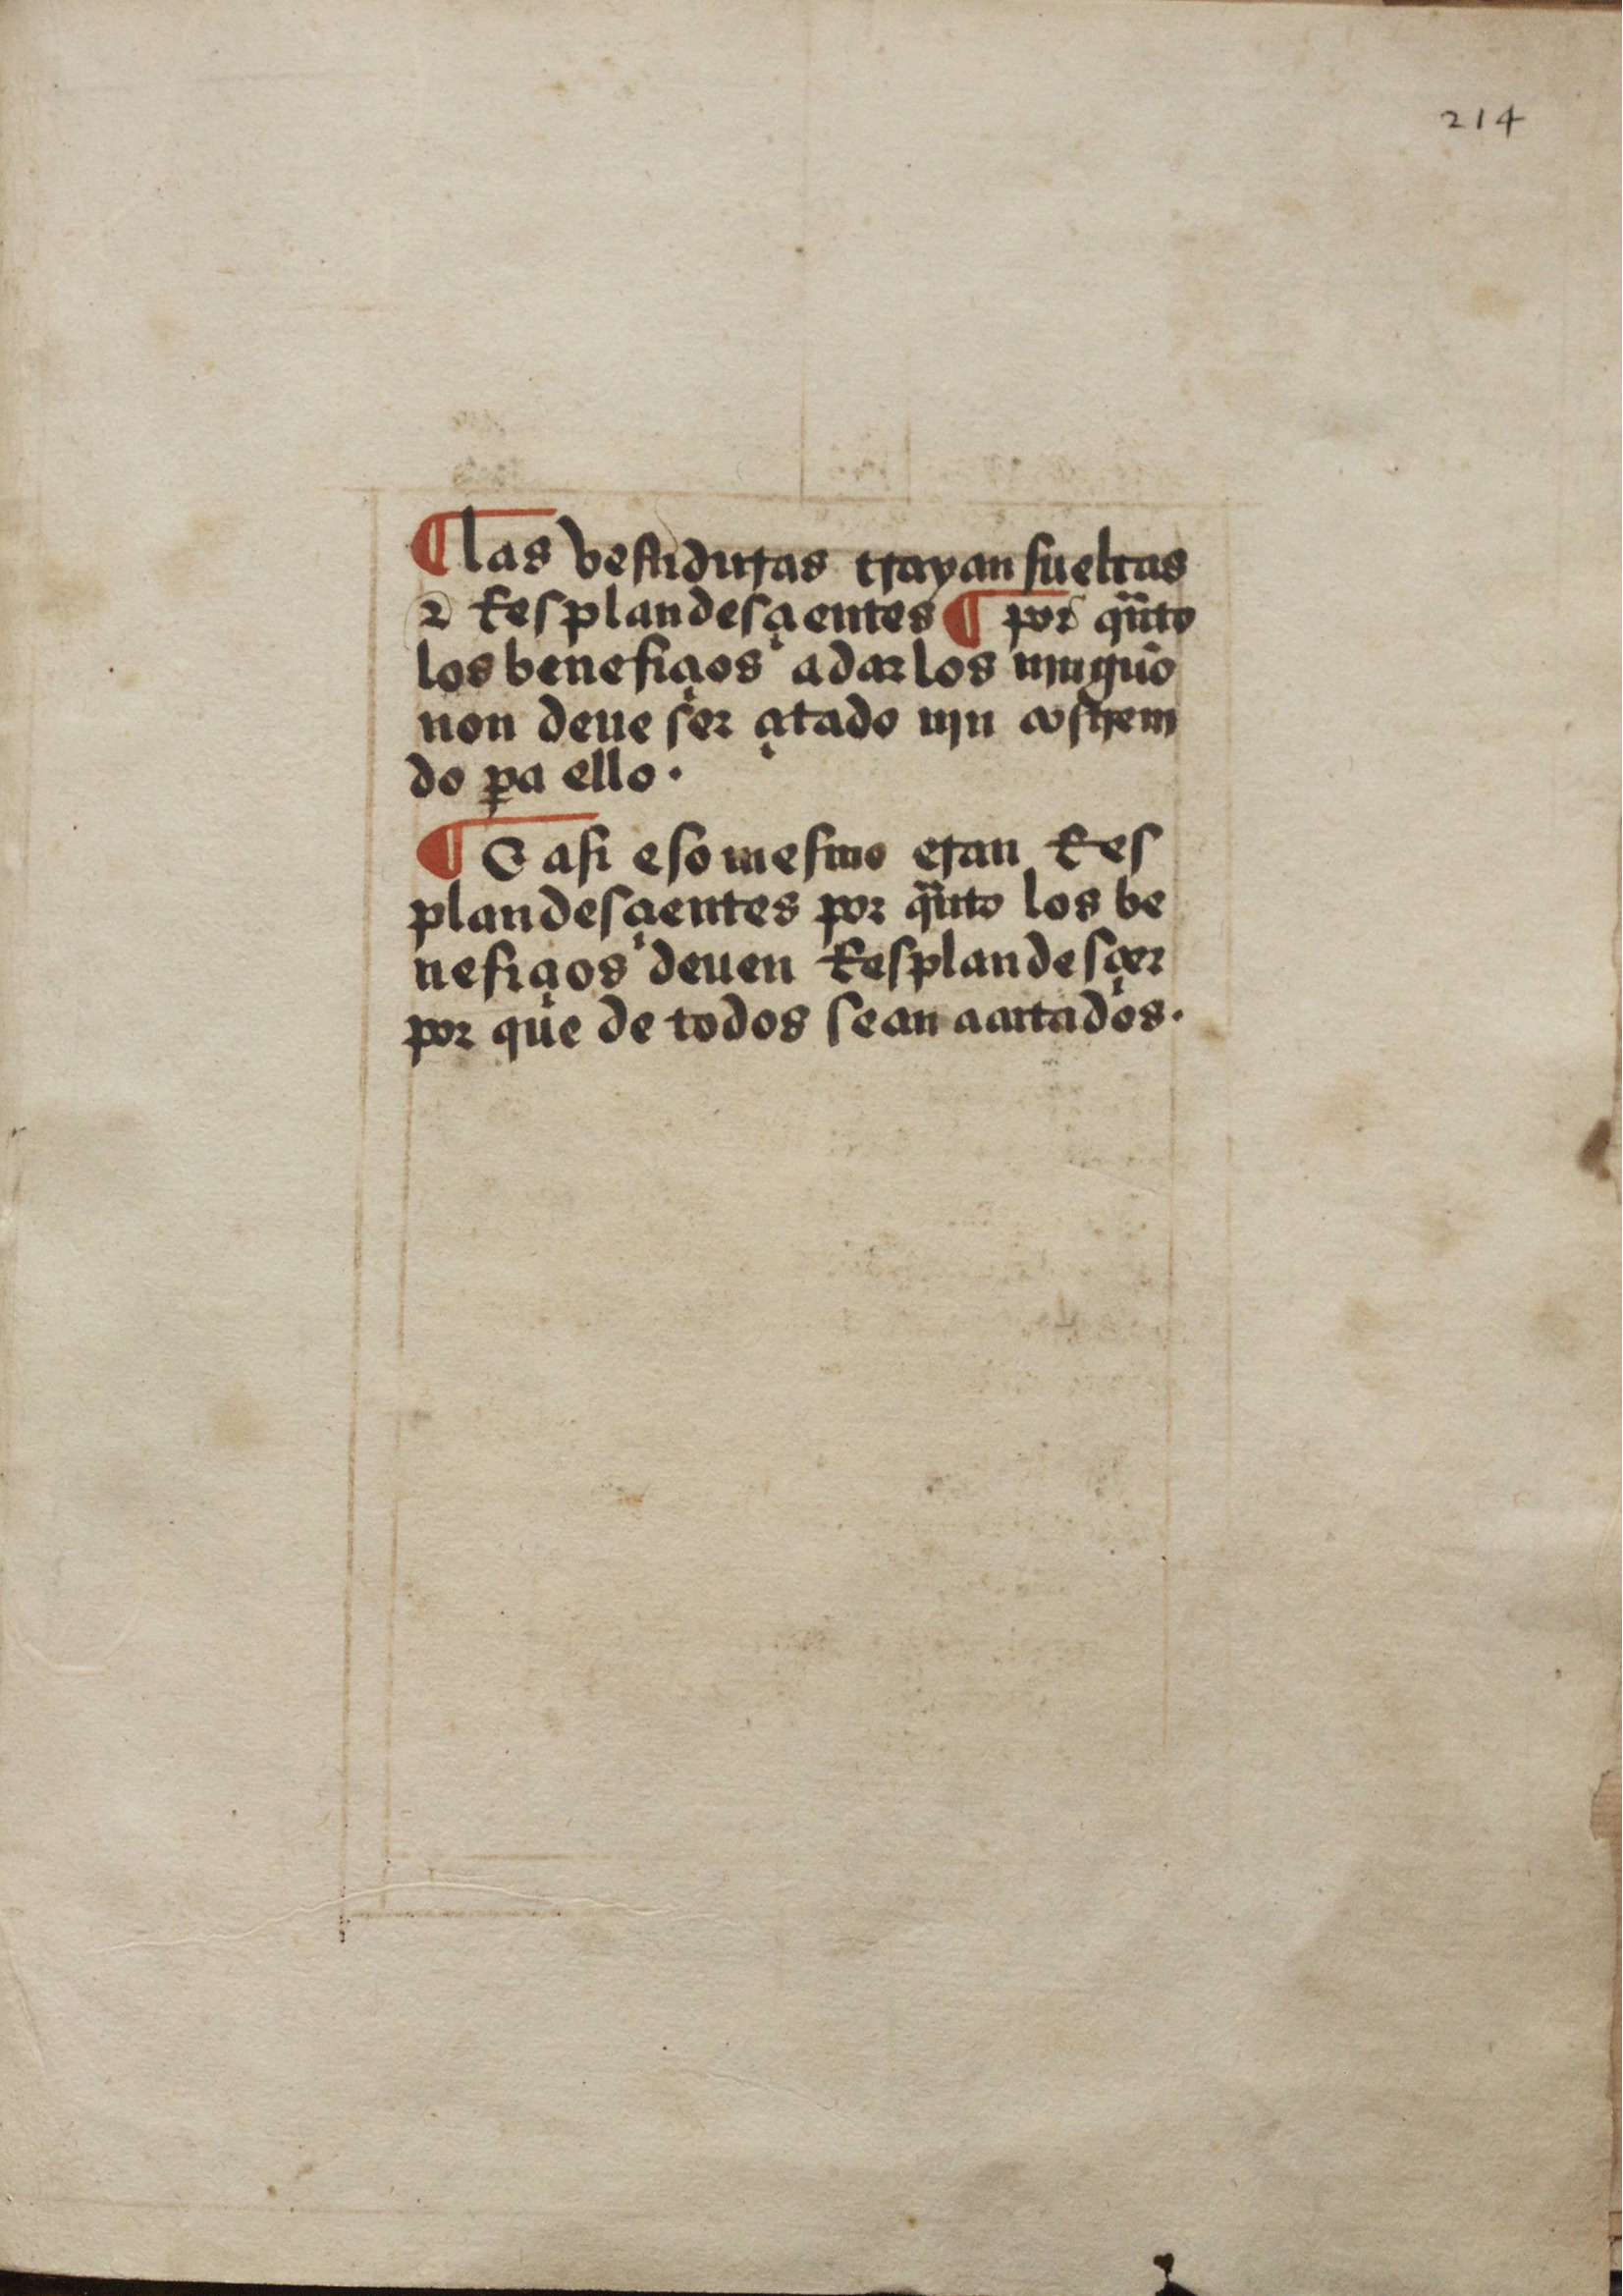 214
¶ las vestiduras trayan sueltas
⁊ Resplandesçientes ¶ por qͣnto
los benefiçios a dar los njnguo
non deue ser çitado njn costrein
do pa ello.
¶ E asi eso mesmo eran Res
plandesçientes por qͣnto los be
nefiçios deuen Resplandesçer
por que de todos sean acatados.